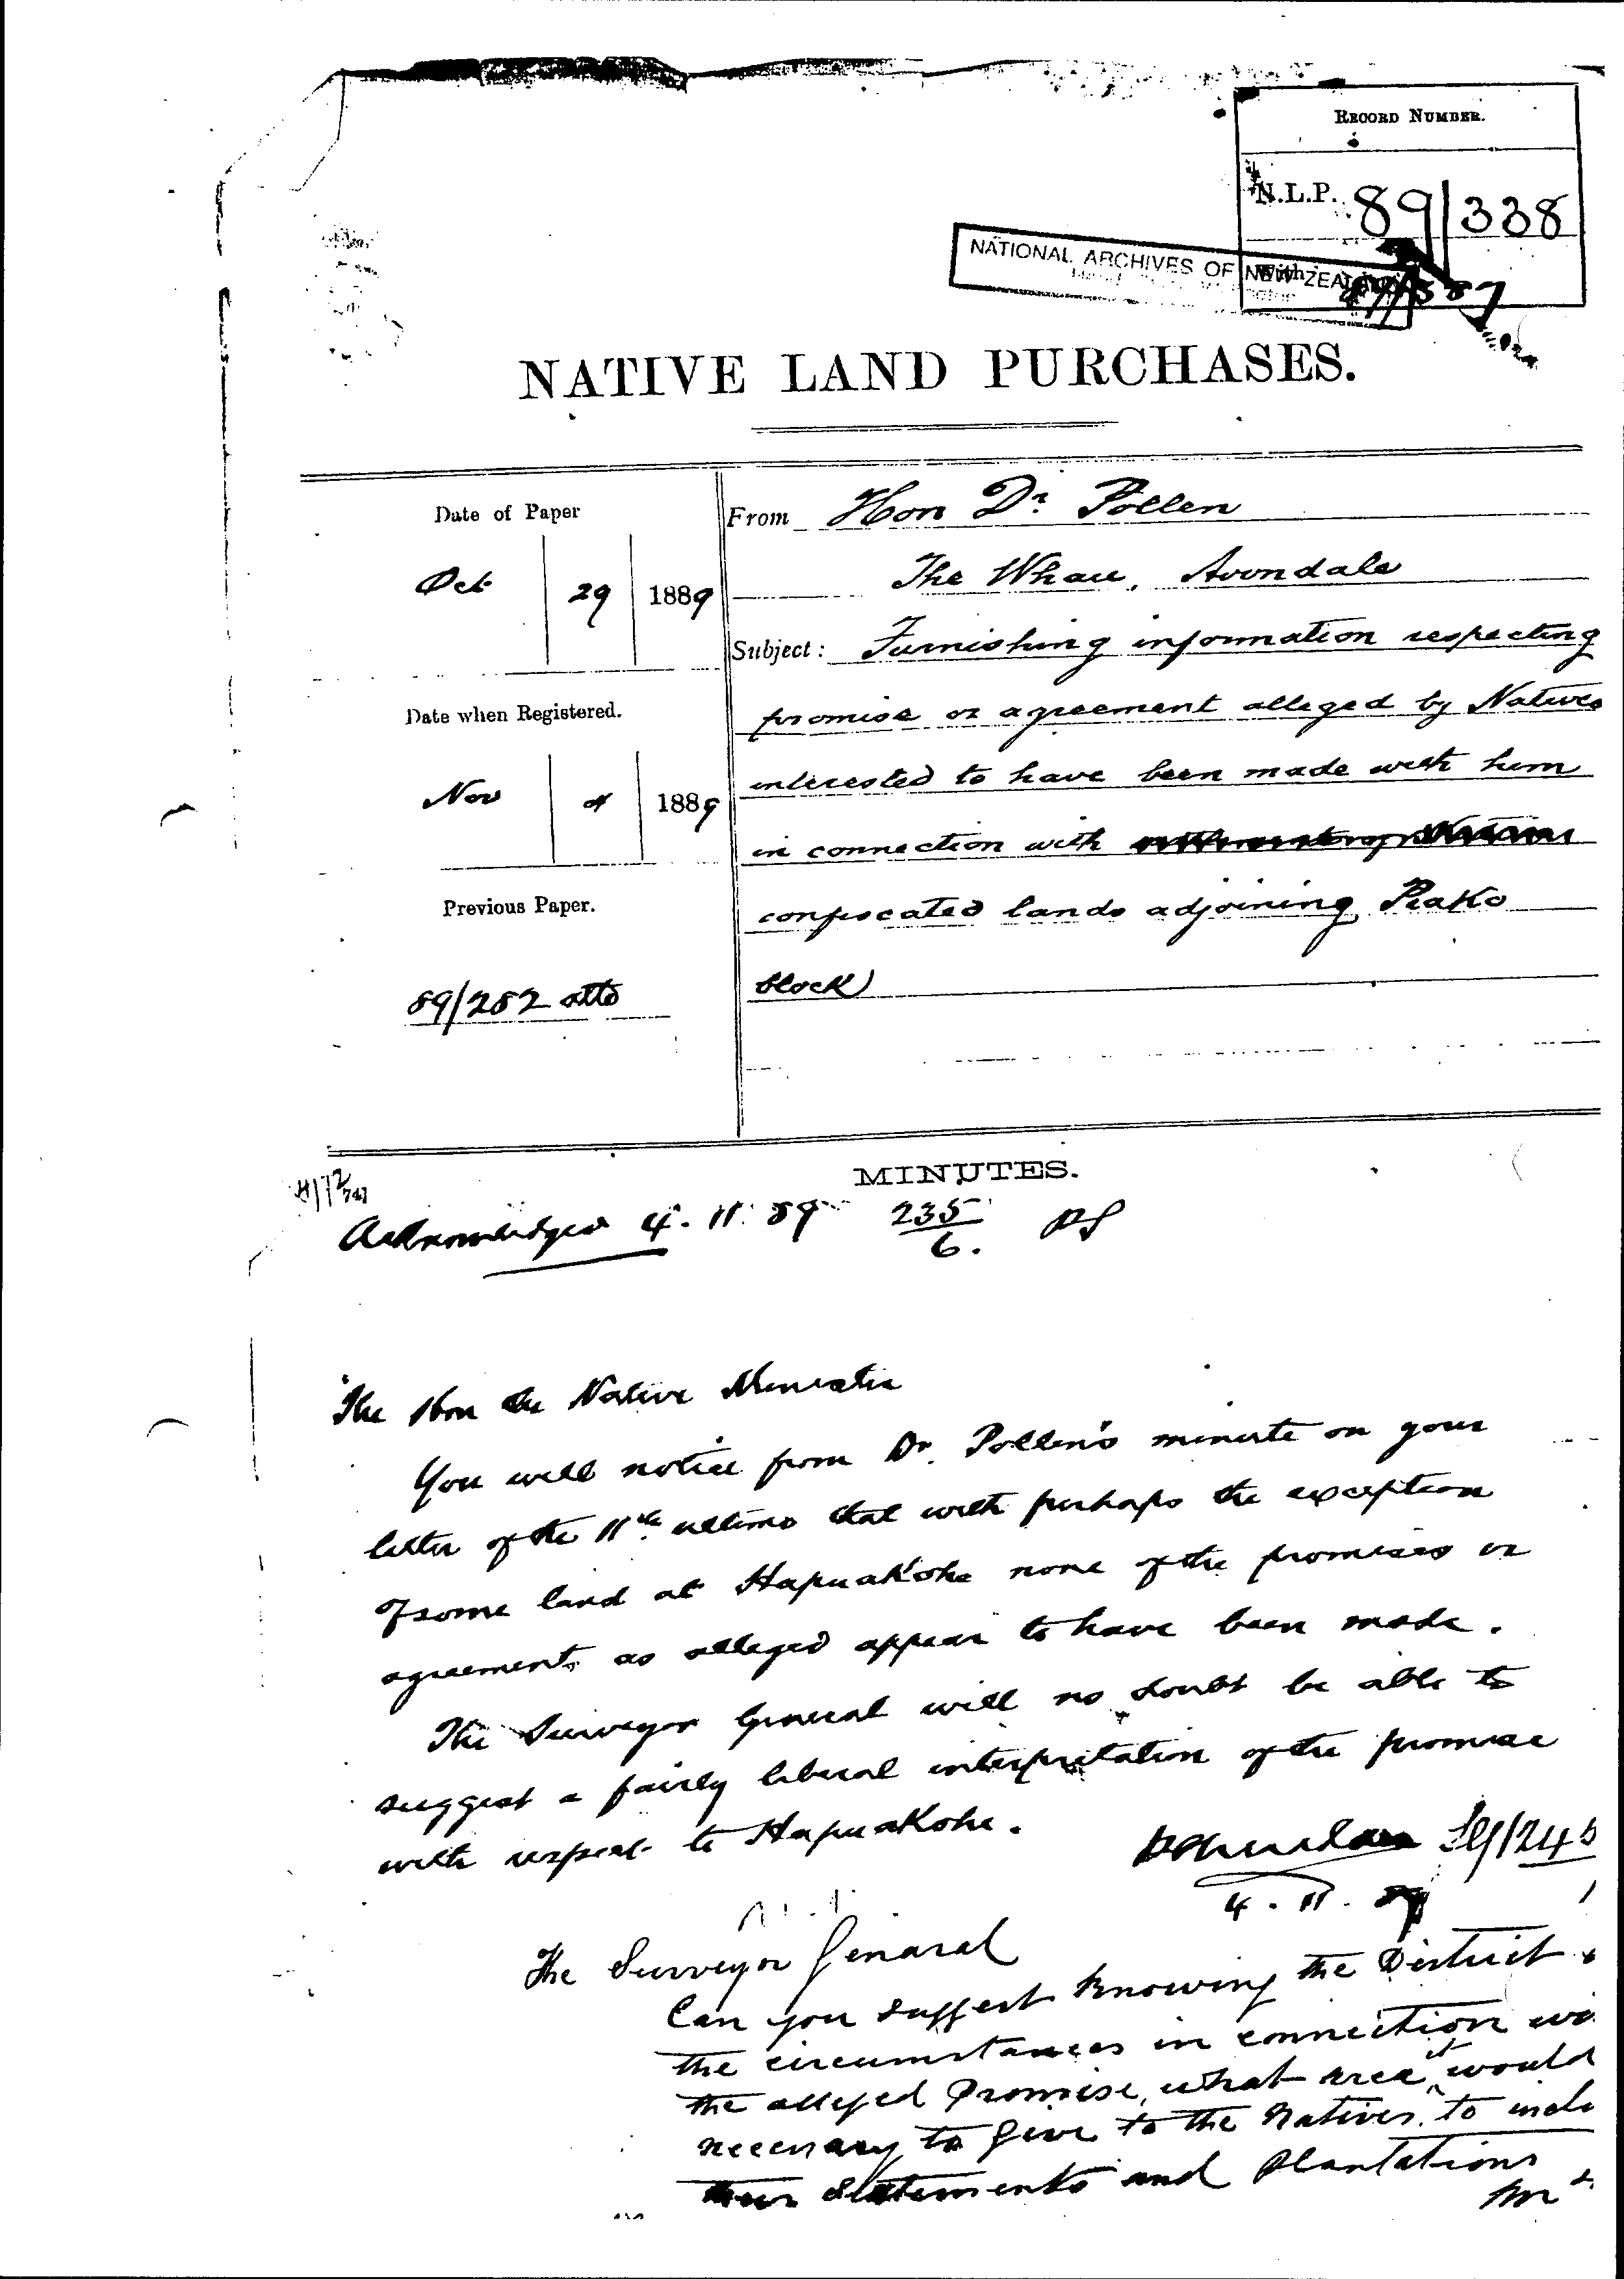 RECORD NUMBER.
N.L.P. 89/338
With
NATIONAL ARCHIVES OF NEW ZEALAND
NATIVE LAND PURCHASES.
Date of Paper
Oct 29 1889
Date when Registered.
Nov 4 1889
Previous Paper.
89/282 attd
From Hon Dr. Pollen
The Whau, Avondale
Subject: Furnishing information respecting
promise or agreement alleged by Natives
interested to have been made with him
in connection with
confiscated lands adjoining Piako
block
MINUTES.
Acknowledged 4.11.89 235/6.
The Hon the Native Minister
You will notice from Dr. Pollen's minute on your
letter of the 11th ultimo that with perhaps the exception
of some land at Hapuakohe none of the promises or
agreements as alleged appear to have been made.
The Surveyor General will no doubt be able to
suggest a fairly liberal interpretation of the promise
with respect to Hapuakohe.
4.11.89
The Surveyor General
Can you suggest knowing the District &
the circumstances in connection wi
the alleged Promise, what area it would
necessary to give to the Natives to inclu
and Plantations